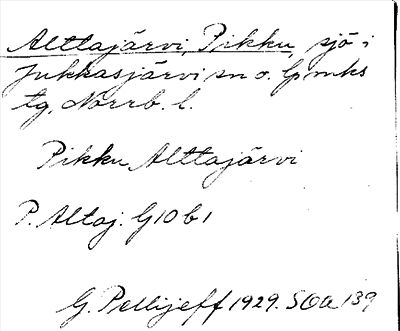 Alttajärvi, Pikku, sjö i
Jukkasjärvi sn o. lpmks
tg, Norrb. l.
Pikku Alttajärvi
P. Altaj. G10b1
G. Pellijeff 1929. SOa 139